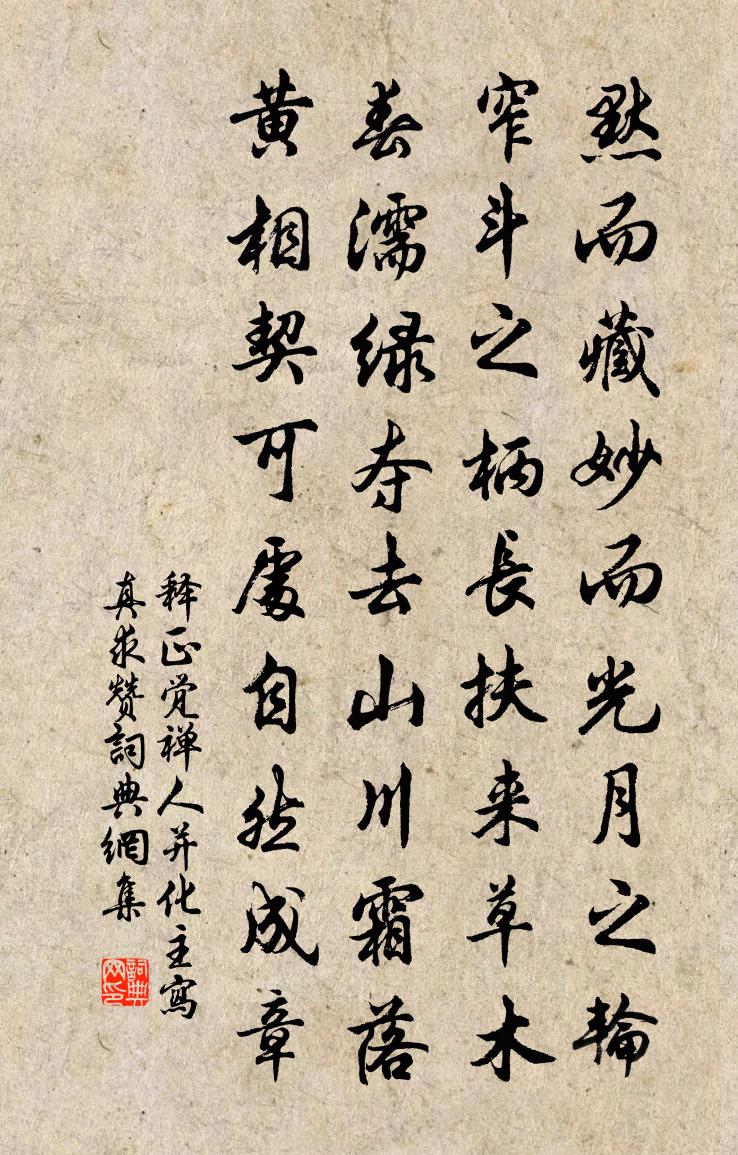 黙而藏妙而光月之輪
窄斗之柄長扶来草木
春濡緑夺去山川霜落
黄相契可處自然成章
释正觉禅人并化主寫
真求赞詞典網集
詞典网印